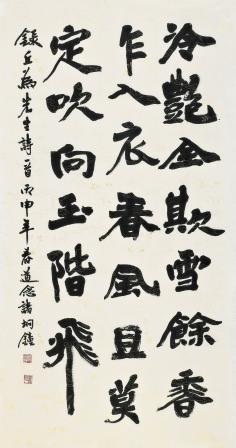 冷艷全欺雪餘香
乍入衣春風且莫
定吹向玉階飛
錄丘為先生詩一首丙申年春道